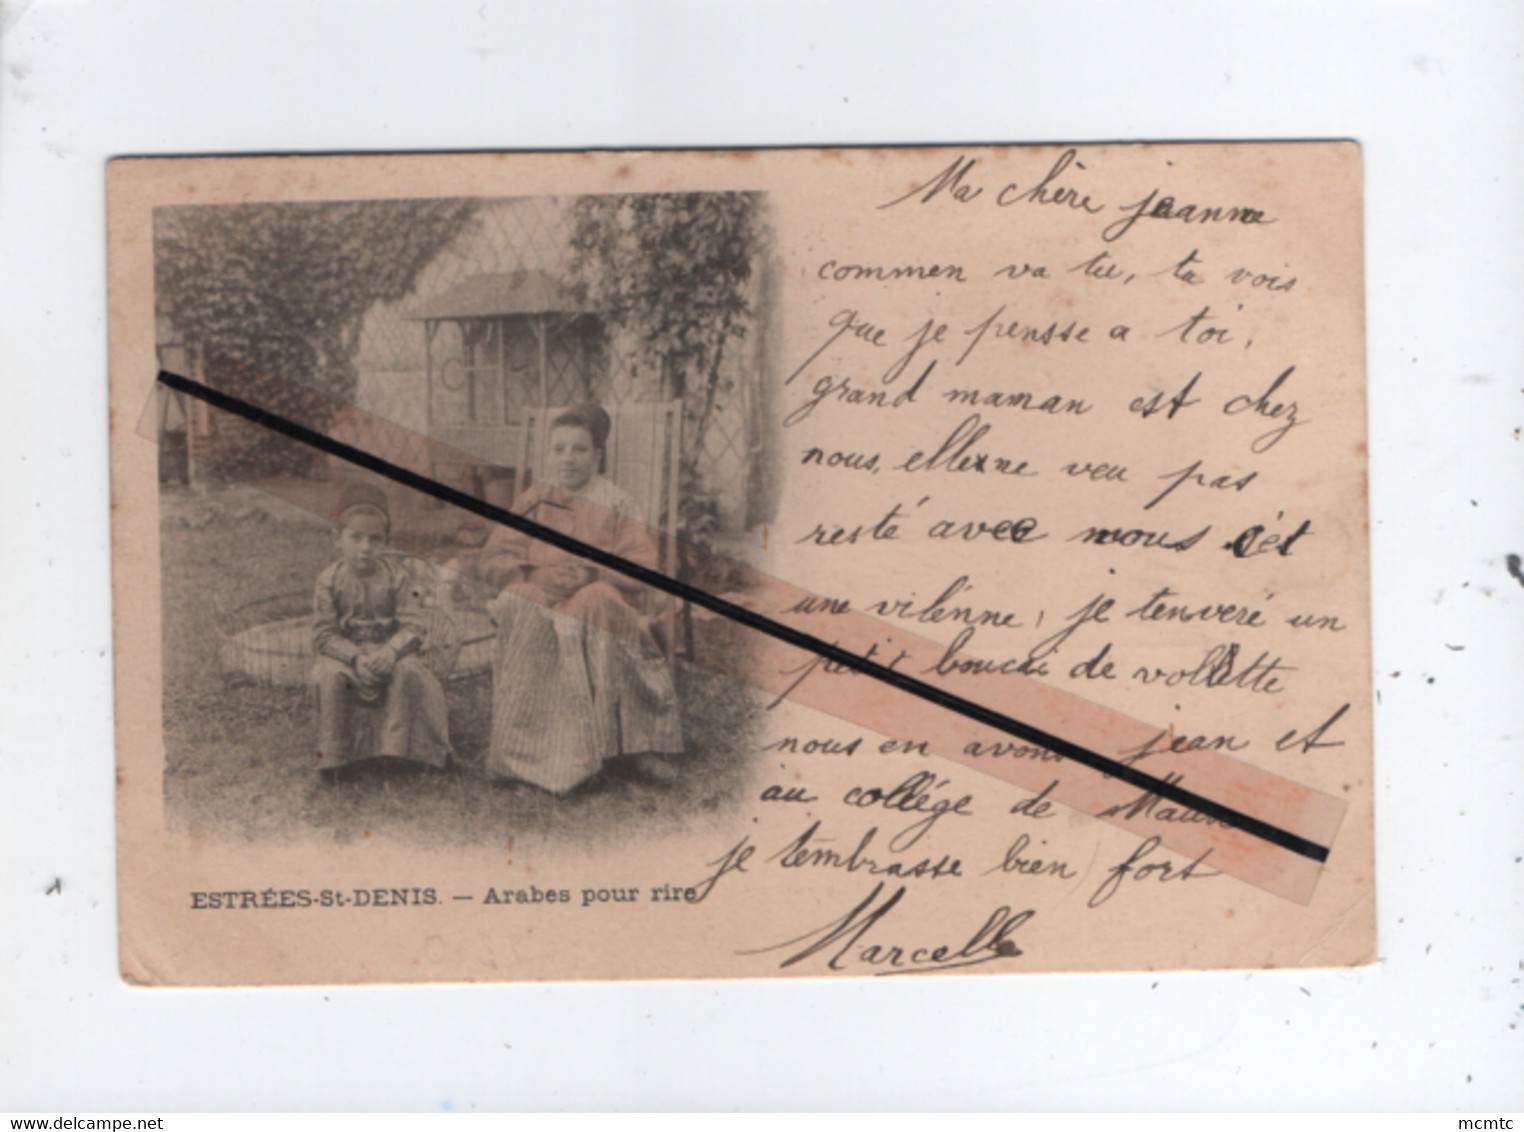 Ma chère jeanne
commen va tu, tu vois
que je pensse a toi,
grand maman est chez
nous, elle ne veu pas
resté avec nous cét
une vilénne, je tenveré un
petit bouai de vollette
nous en avons jean et
au collége de
je tembrasse bien fort
Marcelle
ESTRÉES-St-DENIS. — Arabes pour rire
delcampe.net
mcmtc